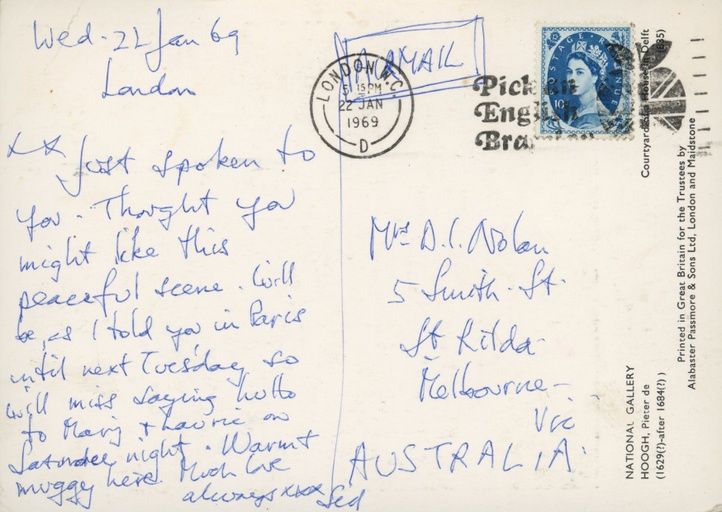 Wed. 22 Jan 69
London
xx Just spoken to
you. Thought you
might like this
peaceful scene. Will
be, as I told you, in Paris
until next Tuesday so
will miss saying hullo
to Mary & Laurie on
Saturday night. Warm &
muggy here. Much love
always xxxx Sid
AIRMAIL
LONDON W.C.
5 15 PM
22 JAN
1969
D
Pick an
English
POSTAGE
Mrs D. S. Nolan
5 Smith St.
St Kilda
Melbourne
Vic
AUSTRALIA
NATIONAL GALLERY
HOOGH, Pieter de
(1629(?)-after 1684(?))
Courtyard
in Delft
Printed in Great Britain for the Trustees by
Alabaster Passmore & Sons Ltd, London and Maidstone